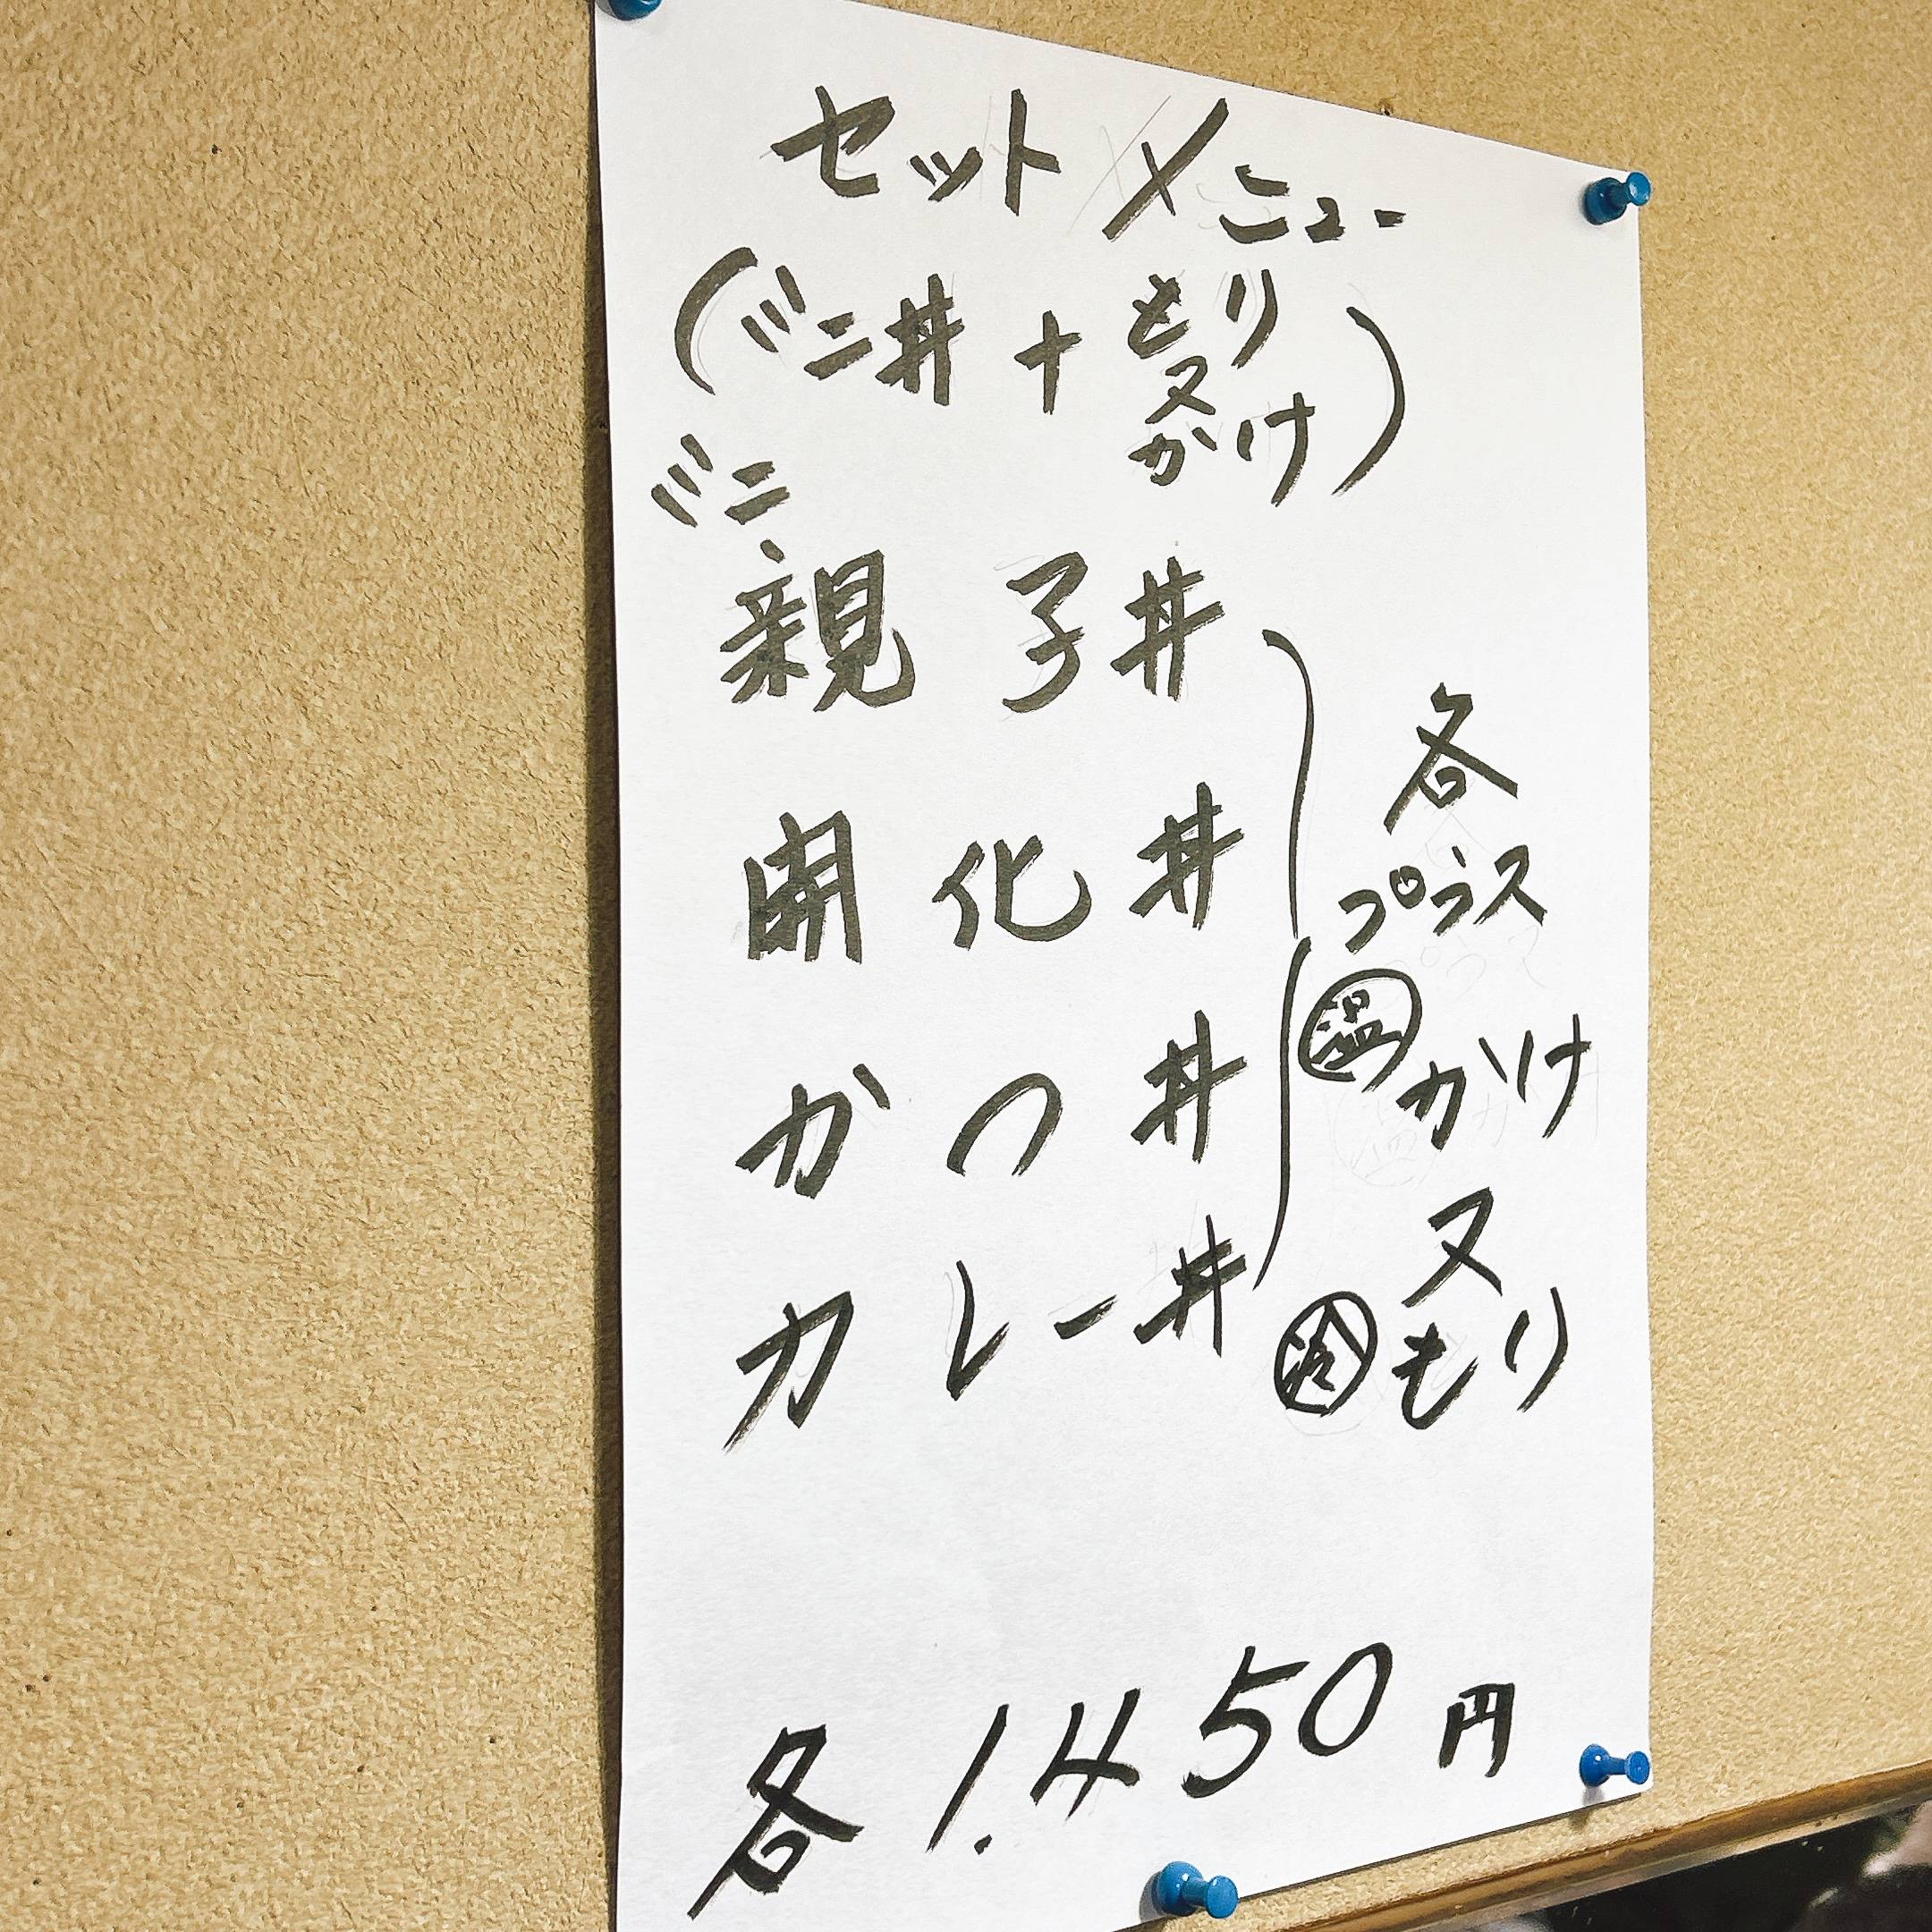 セットメニュー
(ミニ丼+もり又かけ)
ミニ
親子丼
開化丼
かつ丼
カレー丼
各
プラス
温かけ
又
冷もり
各1.450円